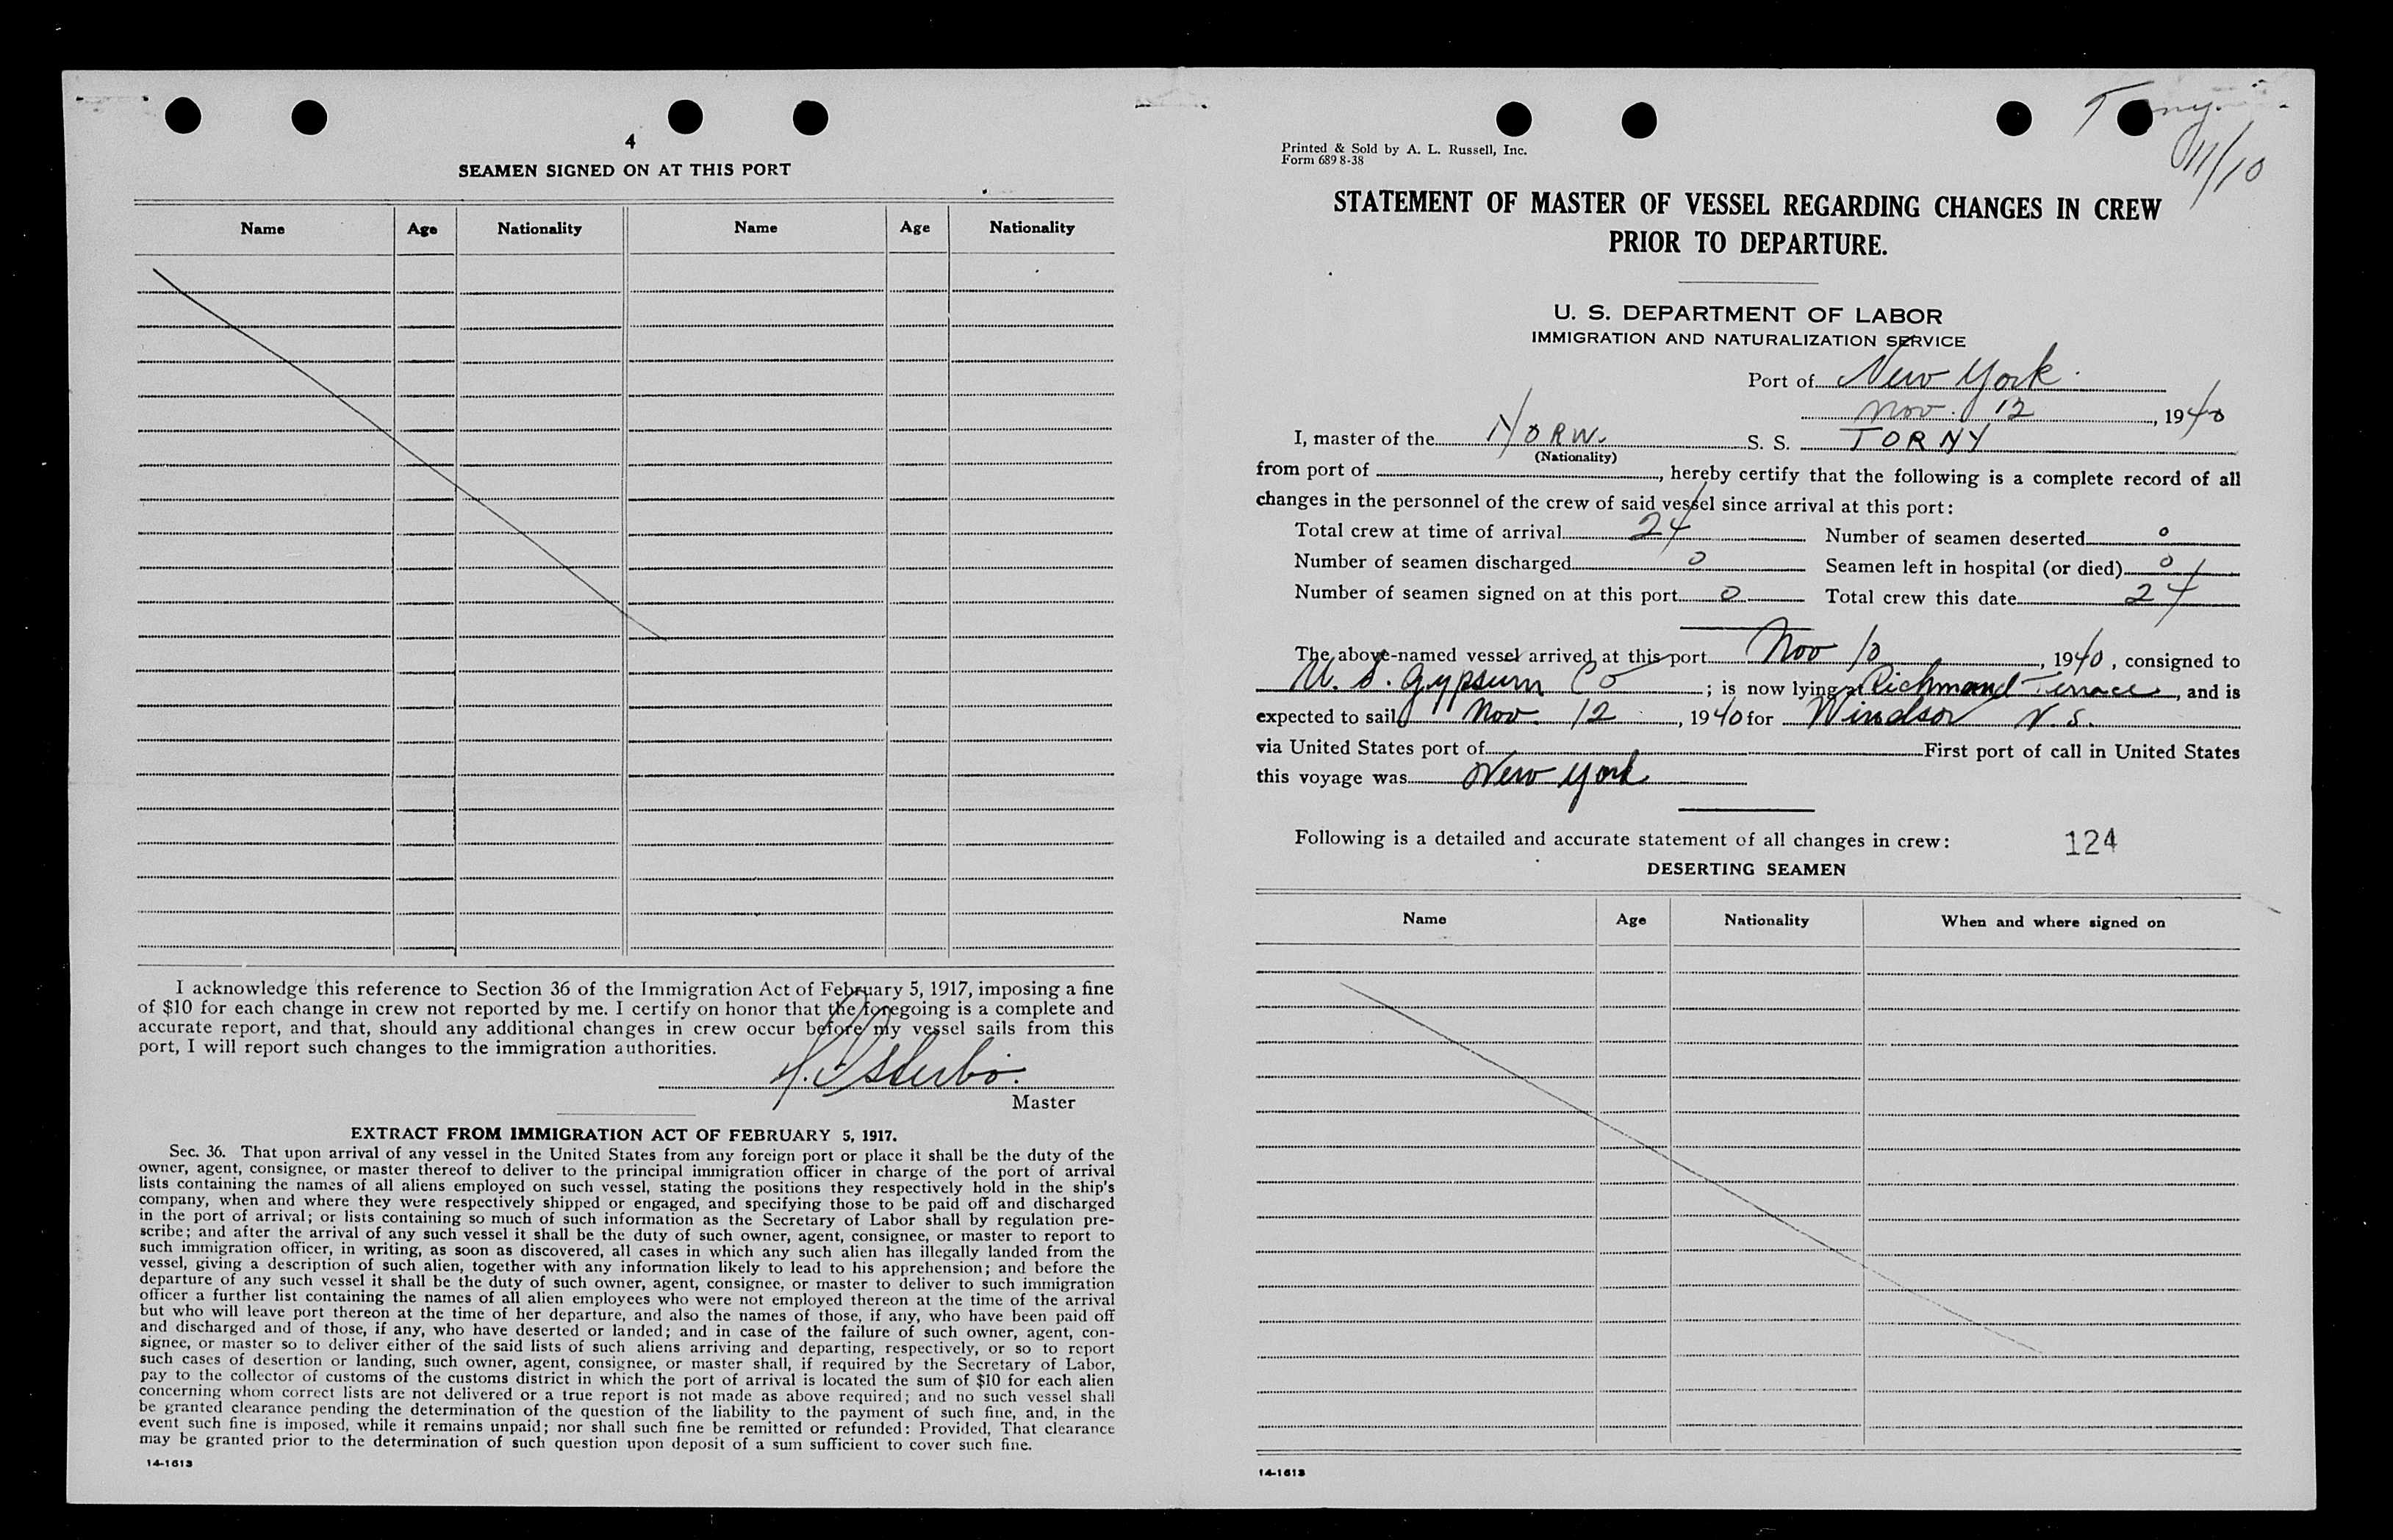 4
SEAMEN SIGNED ON AT THIS PORT
Name Age Nationality Name Age Nationality
I acknowledge this reference to Section 36 of the Immigration Act of February 5, 1917, imposing a fine
of $10 for each change in crew not reported by me. I certify on honor that the foregoing is a complete and
accurate report, and that, should any additional changes in crew occur before my vessel sails from this
port, I will report such changes to the immigration authorities.
Master
EXTRACT FROM IMMIGRATION ACT OF FEBRUARY 5, 1917.
Sec. 36. That upon arrival of any vessel in the United States from any foreign port or place it shall be the duty of the
owner, agent, consignee, or master thereof to deliver to the principal immigration officer in charge of the port of arrival
lists containing the names of all aliens employed on such vessel, stating the positions they respectively hold in the ship's
company, when and where they were respectively shipped or engaged, and specifying those to be paid off and discharged
in the port of arrival; or lists containing so much of such information as the Secretary of Labor shall by regulation pre-
scribe; and after the arrival of any such vessel it shall be the duty of such owner, agent, consignee, or master to report to
such immigration officer, in writing, as soon as discovered, all cases in which any such alien has illegally landed from the
vessel, giving a description of such alien, together with any information likely to lead to his apprehension; and before the
departure of any such vessel it shall be the duty of such owner, agent, consignee, or master to deliver to such immigration
officer a further list containing the names of all alien employees who were not employed thereon at the time of the arrival
but who will leave port thereon at the time of her departure, and also the names of those, if any, who have been paid off
and discharged and of those, if any, who have deserted or landed; and in case of the failure of such owner, agent, con-
signee, or master so to deliver either of the said lists of such aliens arriving and departing, respectively, or so to report
such cases of desertion or landing, such owner, agent, consignee, or master shall, if required by the Secretary of Labor,
pay to the collector of customs of the customs district in which the port of arrival is located the sum of $10 for each alien
concerning whom correct lists are not delivered or a true report is not made as above required; and no such vessel shall
be granted clearance pending the determination of the question of the liability to the payment of such fine, and, in the
event such fine is imposed, while it remains unpaid; nor shall such fine be remitted or refunded: Provided, That clearance
may be granted prior to the determination of such question upon deposit of a sum sufficient to cover such fine.
14-1613
11/10
Printed & Sold by A. L. Russell, Inc.
Form 689 8-38
STATEMENT OF MASTER OF VESSEL REGARDING CHANGES IN CREW
PRIOR TO DEPARTURE.
U. S. DEPARTMENT OF LABOR
IMMIGRATION AND NATURALIZATION SERVICE
Port of New York.
Nov. 12, 1940
I, master of the NORW. S. S. TORNY
(Nationality)
from port of , hereby certify that the following is a complete record of all
changes in the personnel of the crew of said vessel since arrival at this port:
Total crew at time of arrival 24 Number of seamen deserted 0
Number of seamen discharged 0 Seamen left in hospital (or died) 0
Number of seamen signed on at this port 0 Total crew this date 24
The above-named vessel arrived at this port Nov 10, 1940, consigned to
U. S. Gypsum Co ; is now lying at Richmond Terrace, and is
expected to sail Nov. 12, 1940 for Windsor N. S.
via United States port of First port of call in United States
this voyage was New York
Following is a detailed and accurate statement of all changes in crew: 124
DESERTING SEAMEN
Name Age Nationality When and where signed on
14-1613